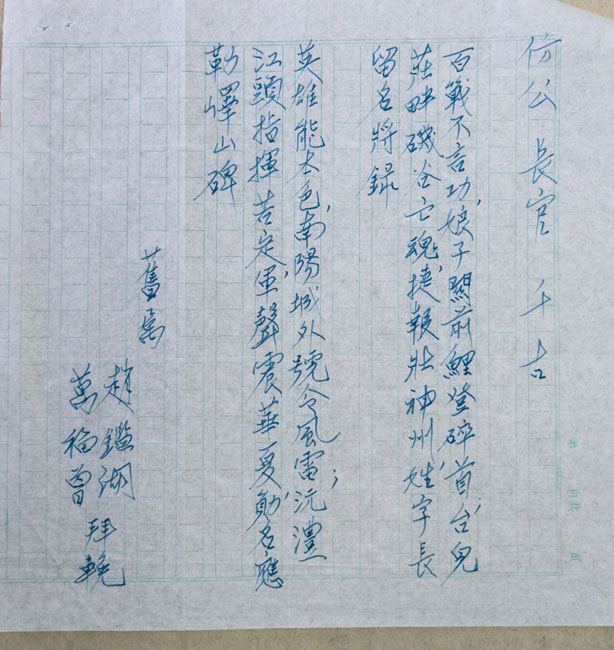 仿公長官千古
百戰不言功,娘子關前鯉登碎首;台兒
莊畔磯谷亡魂,捷報壯神州,姓字長
留名將錄
英雄能本色,南陽城外號令風雷;沅澧
江頭指揮若定,軍聲震華夏,勛名應
勒嶧山碑
舊属
趙鑑湖
萬福曾
拜輓